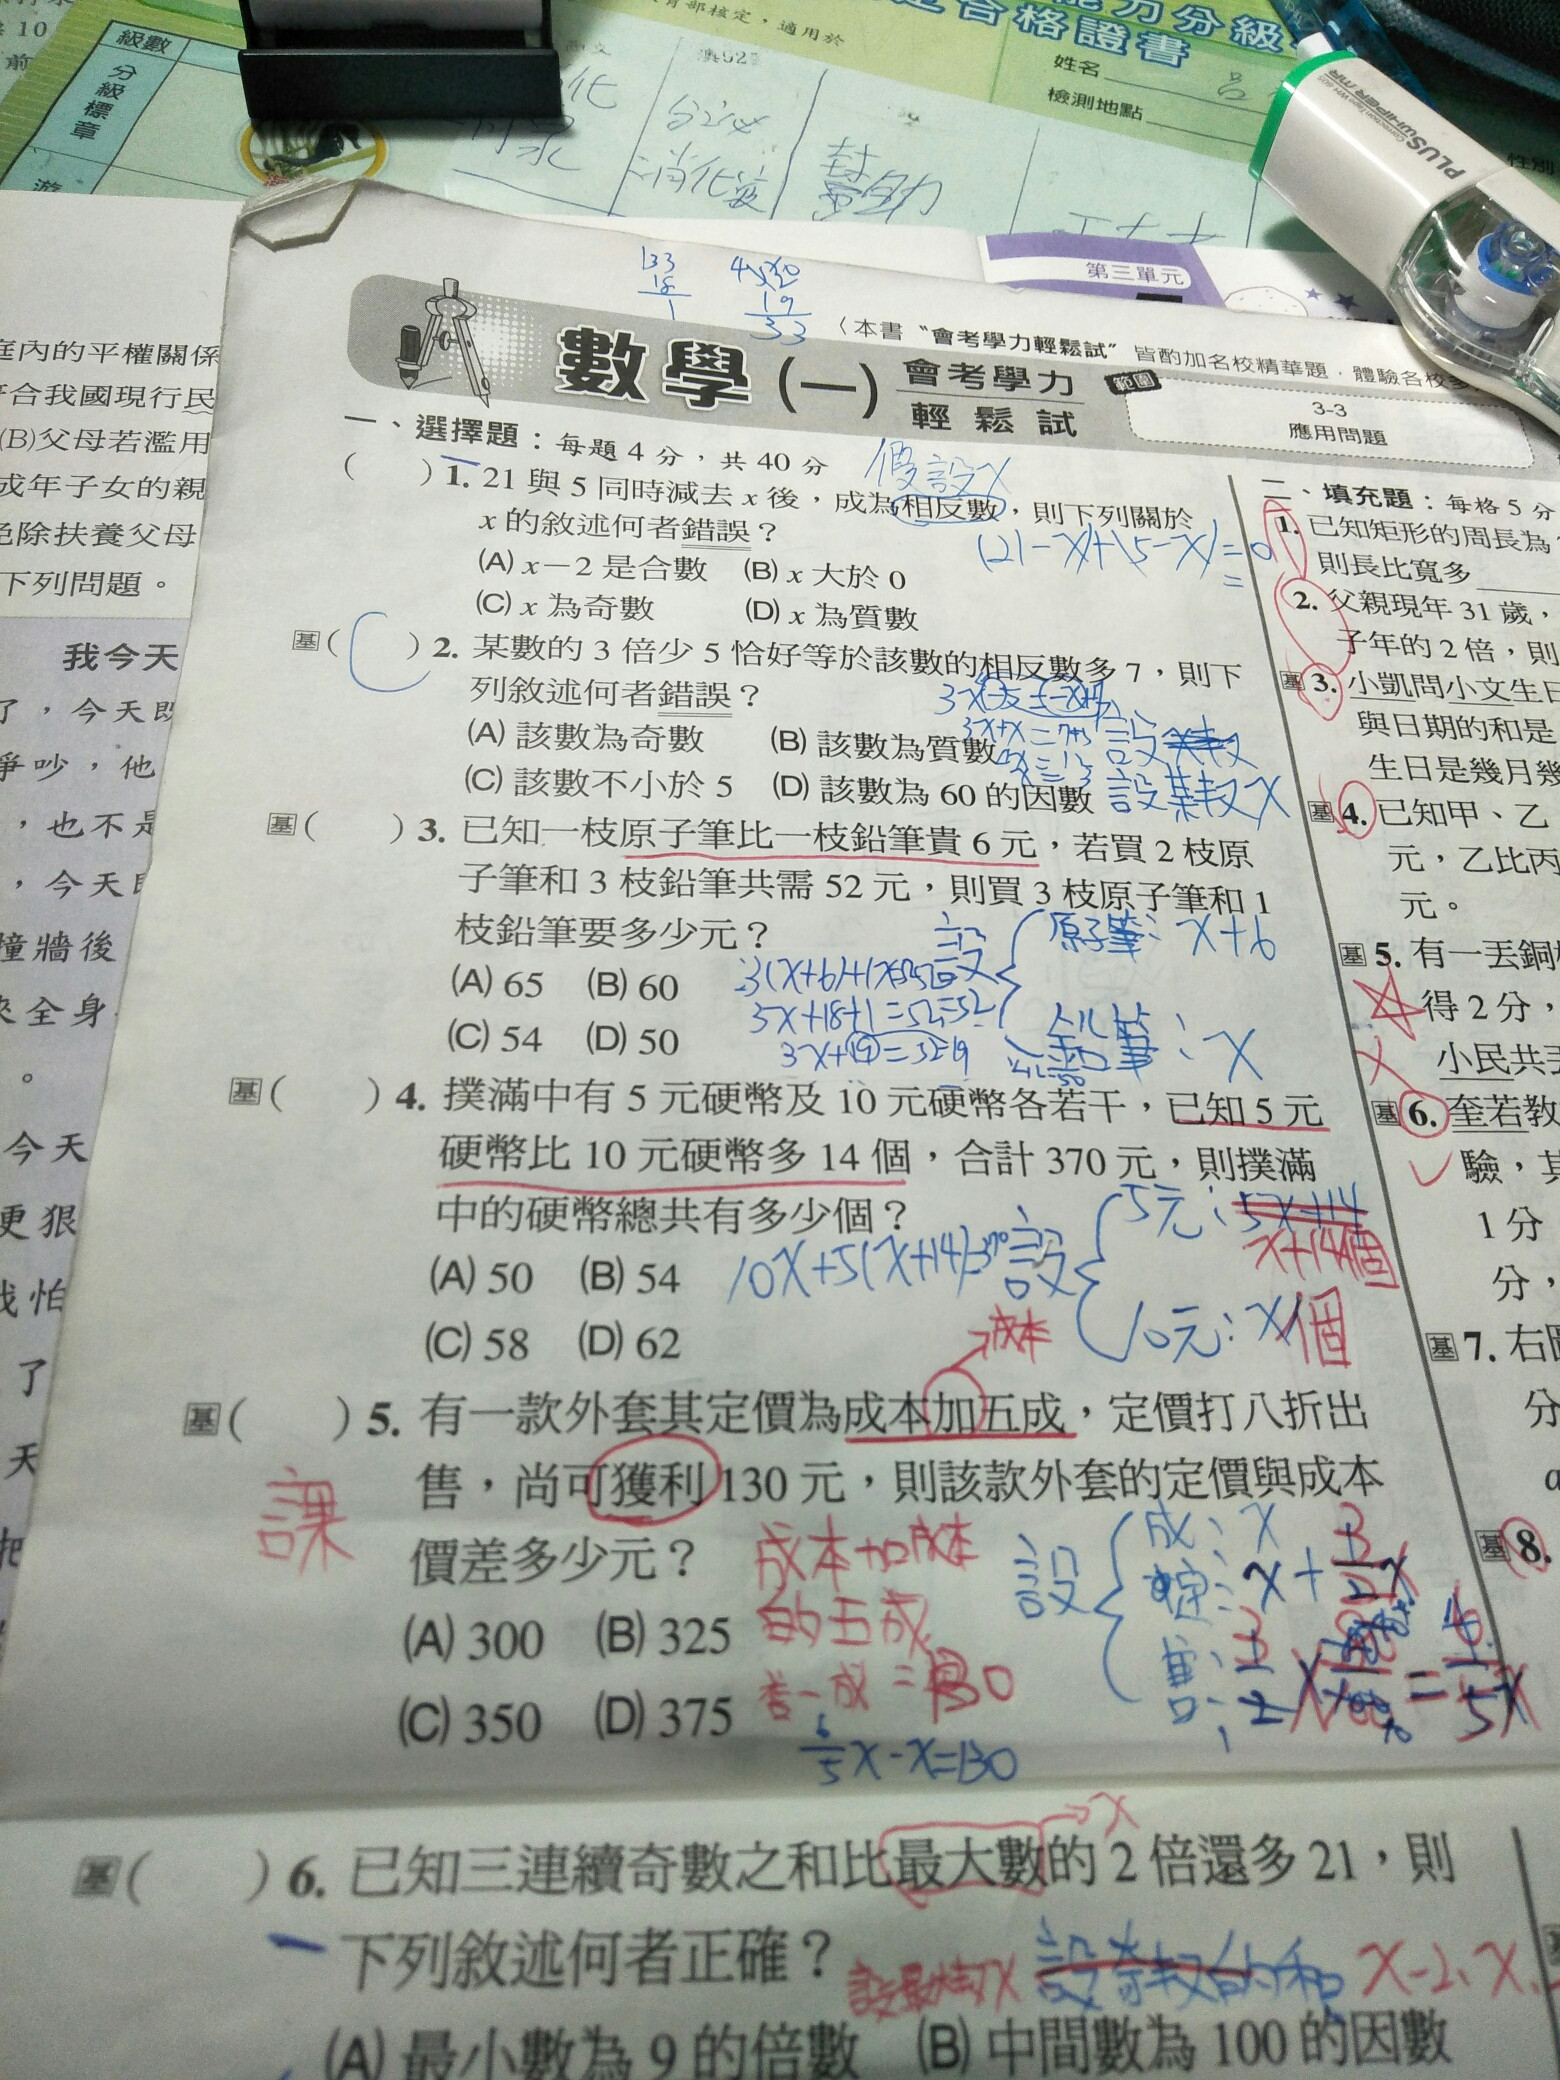 級數
分級標章
教育部核定，適用於
力分級
合格證書
姓名
檢測地點
性別
消化液
PLUS WHIPER MR
Correction Tape WH-605
第三單元
133
18
1
19
33
數學(一) 會考學力輕鬆試
〈本書“會考學力輕鬆試”皆酌加名校精華題，體驗各校多
範圍
3-3
應用問題
一、選擇題：每題4分，共40分
假設x
( )1. 21與5同時減去x後，成為相反數，則下列關於
x的敘述何者錯誤？
(21-x)+(5-x)=0
=
(A) x－2是合數 (B) x大於0
(C) x為奇數 (D) x為質數
基( )2. 某數的3倍少5恰好等於該數的相反數多7，則下
列敘述何者錯誤？
3x-5=-x+7
(A) 該數為奇數 (B) 該數為質數
3x+x=7+5
4x=12
x=3
設某數x
(C) 該數不小於5 (D) 該數為60的因數
基( )3. 已知一枝原子筆比一枝鉛筆貴6元，若買2枝原
子筆和3枝鉛筆共需52元，則買3枝原子筆和1
枝鉛筆要多少元？
設 原子筆：x+6
鉛筆：x
(A) 65 (B) 60
(C) 54 (D) 50
基( )4. 撲滿中有5元硬幣及10元硬幣各若干，已知5元
硬幣比10元硬幣多14個，合計370元，則撲滿
中的硬幣總共有多少個？
設 5元：5x+14
x+14個
10元：x個
10x+5(x+14)=370
(A) 50 (B) 54
(C) 58 (D) 62
成本
基( )5. 有一款外套其定價為成本加五成，定價打八折出
售，尚可獲利130元，則該款外套的定價與成本
價差多少元？
課
成本加成本
的五成
售-成=130
6/5x-x=130
設 成：x
(A) 300 (B) 325
(C) 350 (D) 375
x
基( )6. 已知三連續奇數之和比最大數的2倍還多21，則
下列敘述何者正確？
設最大數x 設奇數的和 x-2、x、
(A) 最小數為9的倍數 (B) 中間數為100的因數
二、填充題：每格5分
1. 已知矩形的周長為
則長比寬多
2. 父親現年31歲，
子年的2倍，則
基3. 小凱問小文生日
與日期的和是
生日是幾月幾
基4. 已知甲、乙
元，乙比丙
元。
基5. 有一丟銅板
得2分，
小民共丟
基6. 奎若教
驗，其
1分
分，
基7. 右圖
分
基8.
庭內的平權關係
符合我國現行民
(B)父母若濫用
成年子女的親
免除扶養父母
下列問題。
我今天
了，今天既
爭吵，他
，也不是
，今天
撞牆後
來全身
。
今天
更狠
我怕
了
天
把